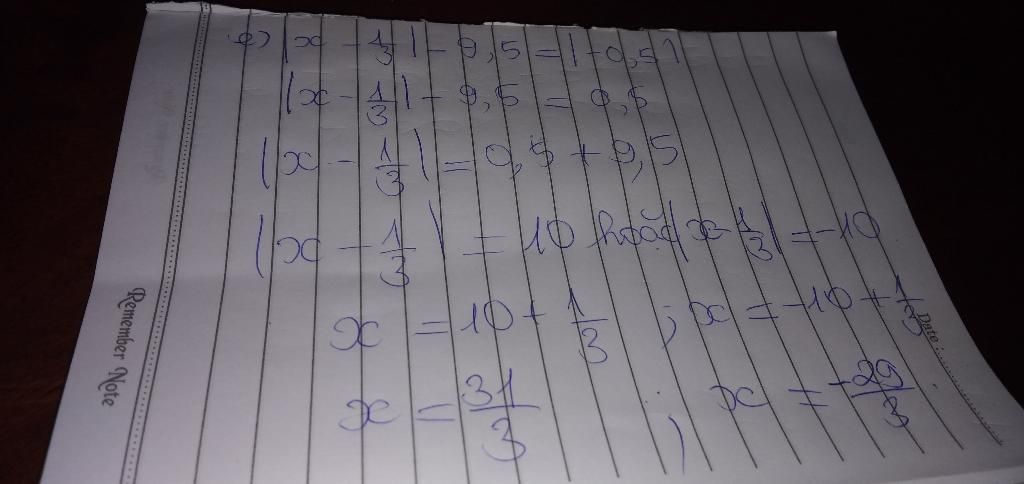 e) |x - 1/3| - 9,5 = |-0,5|
|x - 1/3| - 9,5 = 0,5
|x - 1/3| = 0,5 + 9,5
|x - 1/3| = 10 hoặc |x - 1/3| = -10
x = 10 + 1/3 ; x = -10 + 1/3
x = 31/3 ; x = -29/3
Remember Note
Date: